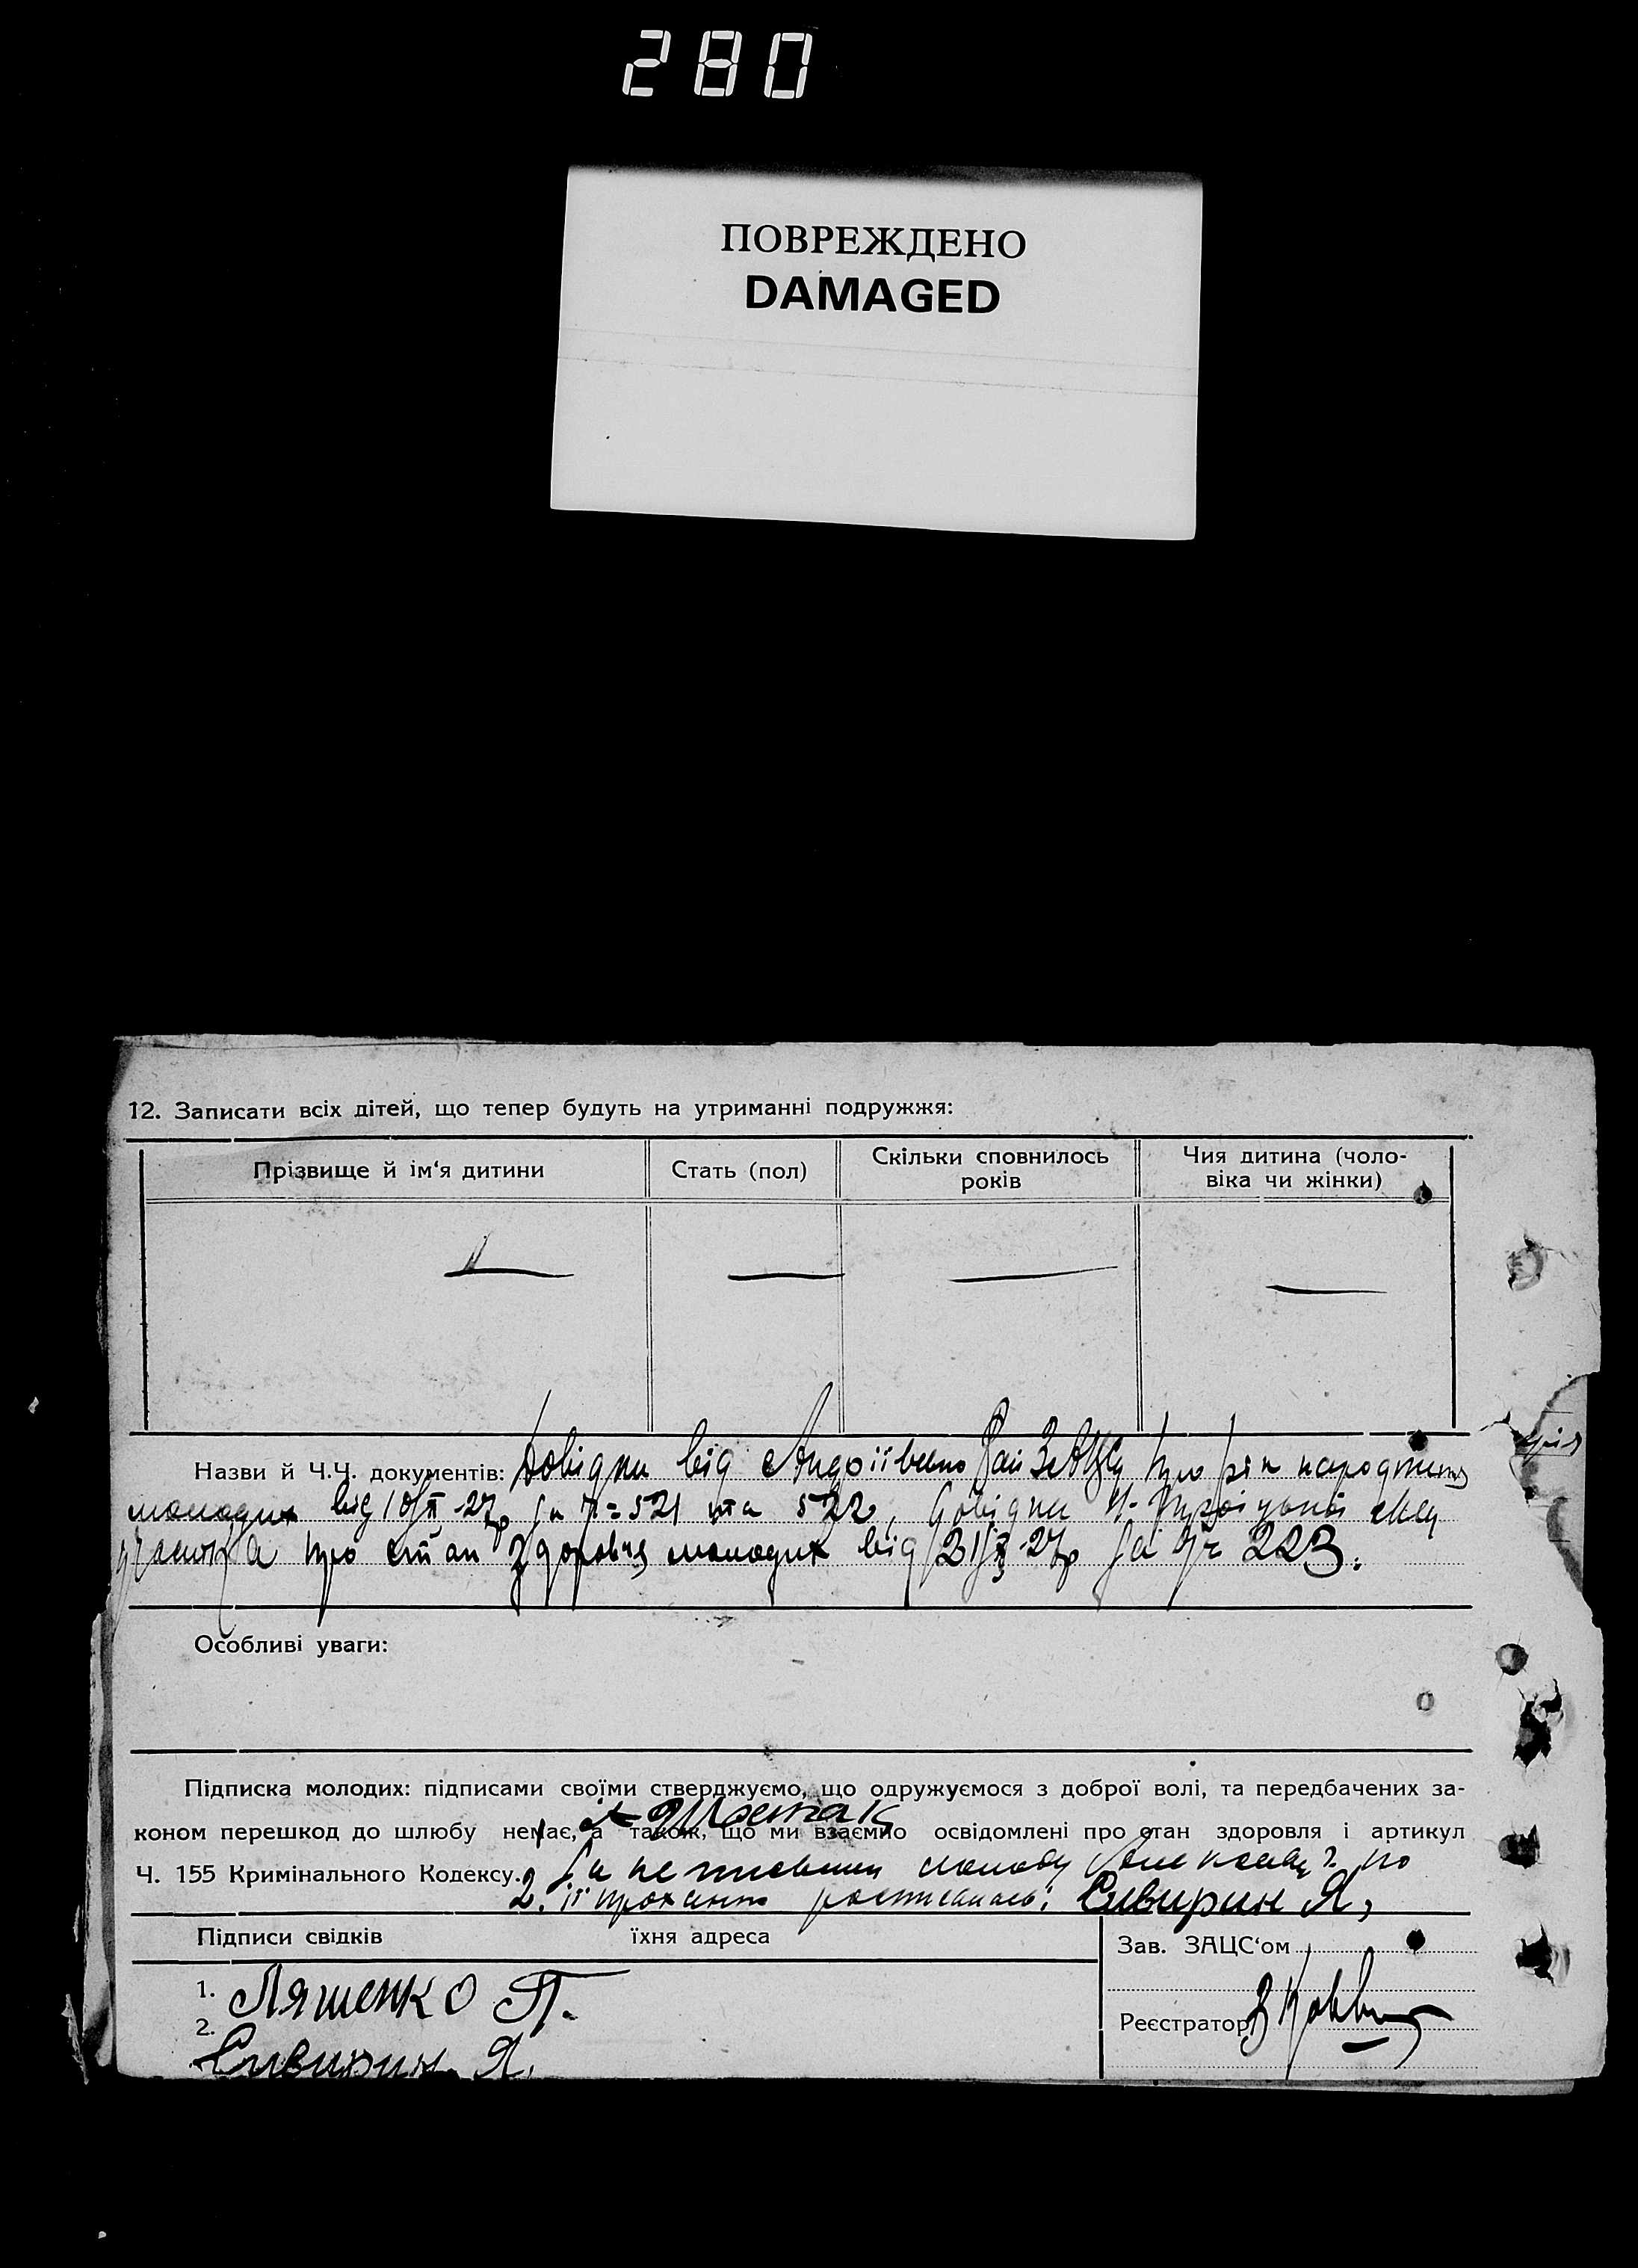 280
ПОВРЕЖДЕНО
DAMAGED
12. Записати всіх дітей, що тепер будуть на утриманні подружжя:
Прізвище й ім‘я дитини
Стать (пол)
Скільки сповнилось років
Чия дитина (чоло-
віка чи жінки)
Назви й Ч.Ч. документів: Довідки від Андріївського Рай ЗАЦСу про рік народження
молодих від 27р за 521 та 522, довідки
про стан здоровця молодих від 27р за 223.
Особливі уваги:
Підписка молодих: підписами своїми стверджуємо, що одружуємося з доброї волі, та передбачених за-
коном перешкод до шлюбу немає, а також, що ми взаємно освідомлені про стан здоровля і артикул
Ч. 155 Кримінального Кодексу.
2. За неписьмену молоду по
її проханню росписалась: Сивирин Я,
Підписи свідків
їхня адреса
Зав. ЗАЦС‘ом
1. Ляшенко П.
2. Сивирин Я.
Реєстратор